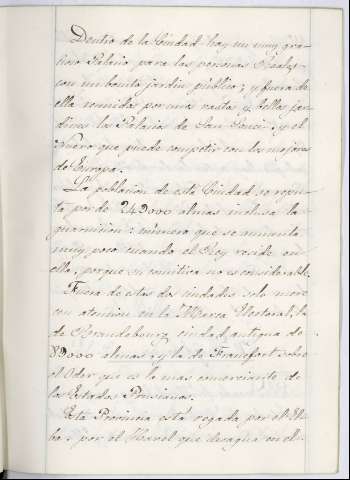 Dentro de la Ciudad hay un muy gra-
cioso Palacio para las personas Reales,
con un bonito jardin publico; y fuera de
ella reunidos por unos vastos y bellos jar-
dines los Palacios de San Souci, y el
Nuevo que puede competir con los mejores
de Europa.
La poblacion de esta Ciudad se repu-
ta por de 24000 almas inclusa la
guarnicion: número que se aumenta
muy poco cuando el Rey reside en
ella, porque su comitiva no es considerabl.
Fuera de estas dos ciudades solo mere-
cen atencion en la Marca Electoral, la
de Brandebourg, ciudad antigua de
89000 almas; y la de Francfort sobre
el Oder que es la mas comerciante de
los Estados Prusianos.
Esta Provincia está regada por el El-
ba: por el Havel que desagua en el: